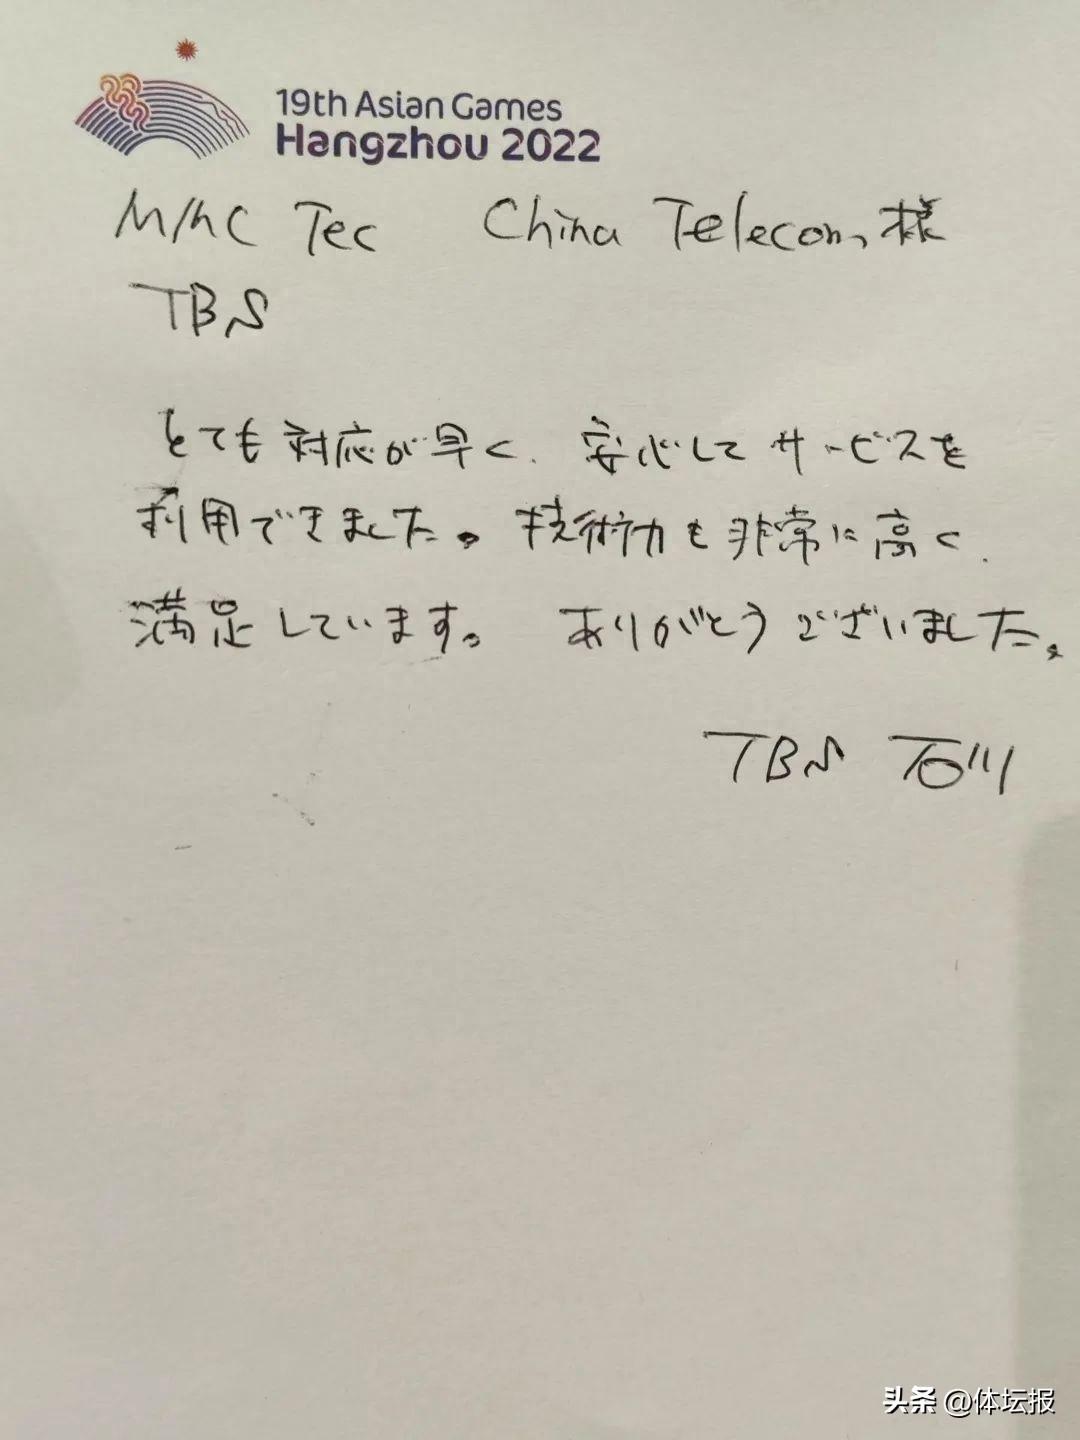 19th Asian Games
Hangzhou 2022
MMC Tec China Telecom 様
TBS
とても対応が早く、安心してサービスを
利用できました。技術力も非常に高く、
満足しています。ありがとうございました。
TBS 石川
头条 @体坛报